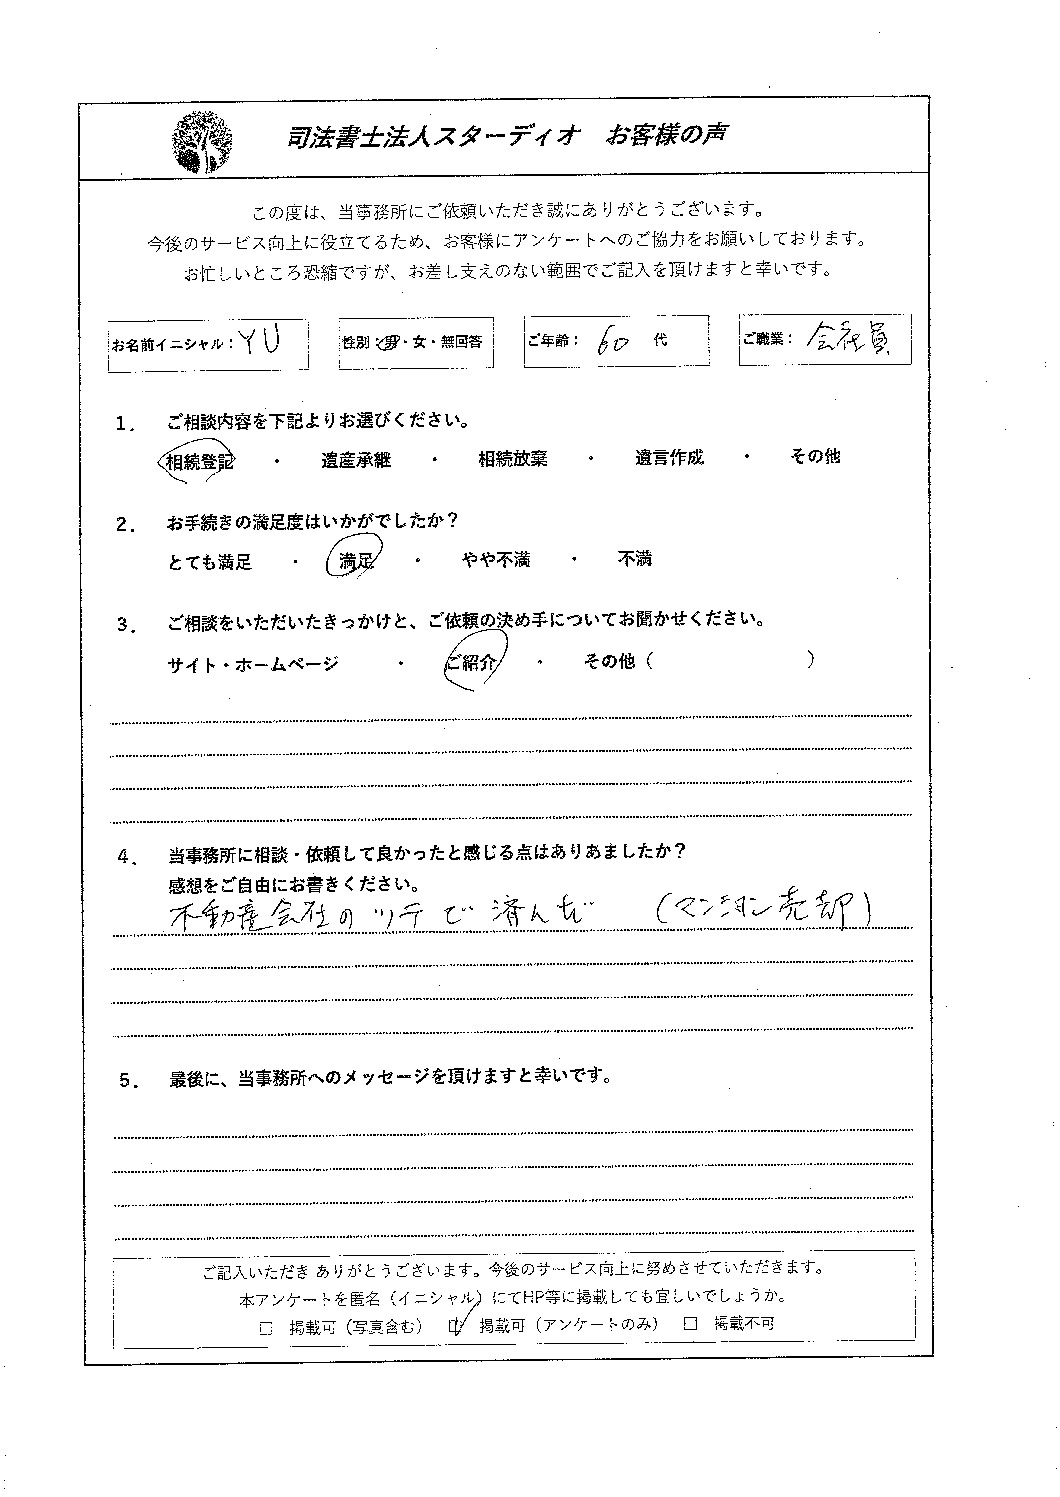 司法書士法人スターディオ　お客様の声
この度は、当事務所にご依頼いただき誠にありがとうございます。
今後のサービス向上に役立てるため、お客様にアンケートへのご協力をお願いしております。
お忙しいところ恐縮ですが、お差し支えのない範囲でご記入を頂けますと幸いです。
お名前イニシャル：YU　性別：男・女・無回答　ご年齢：60 代　ご職業：会社員
1.　ご相談内容を下記よりお選びください。
相続登記　・　遺産承継　・　相続放棄　・　遺言作成　・　その他
2.　お手続きの満足度はいかがでしたか？
とても満足　・　満足　・　やや不満　・　不満
3.　ご相談をいただいたきっかけと、ご依頼の決め手についてお聞かせください。
サイト・ホームページ　・　ご紹介　・　その他（　　　　　）
4.　当事務所に相談・依頼して良かったと感じる点はありあましたか？
感想をご自由にお書きください。
不動産会社のツテで済んだ　（マンション売却）
5.　最後に、当事務所へのメッセージを頂けますと幸いです。
ご記入いただき ありがとうございます。今後のサービス向上に努めさせていただきます。
本アンケートを匿名（イニシャル）にてHP等に掲載しても宜しいでしょうか。
□　掲載可（写真含む）　☑　掲載可（アンケートのみ）　□　掲載不可